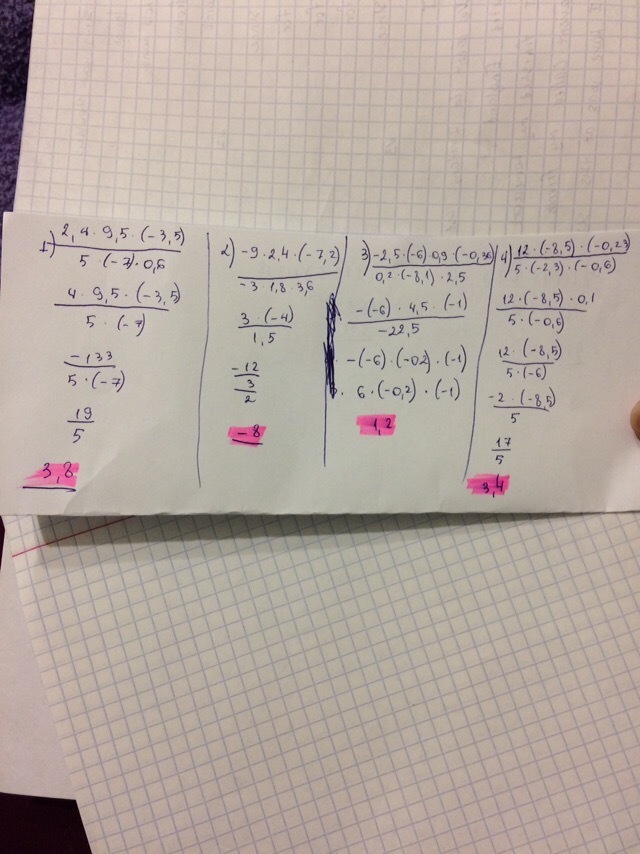 1) 2,4 · 9,5 · (-3,5)
5 · (-7) · 0,6
4 · 9,5 · (-3,5)
5 · (-7)
-133
5 · (-7)
19
5
3,8
2) -9 · 2,4 · (-7,2)
-3 · 1,8 · 3,6
3 · (-4)
1,5
-12
3
2
-8
3) -2,5 · (-6) · 0,9 · (-0,36)
0,2 · (-8,1) · 2,5
-(-6) · 4,5 · (-1)
-22,5
-(-6) · (-0,2) · (-1)
6 · (-0,2) · (-1)
1,2
4) 12 · (-8,5) · (-0,23)
5 · (-2,3) · (-0,6)
12 · (-8,5) · 0,1
5 · (-0,6)
12 · (-8,5)
5 · (-6)
-2 · (-8,5)
5
17
5
3,4